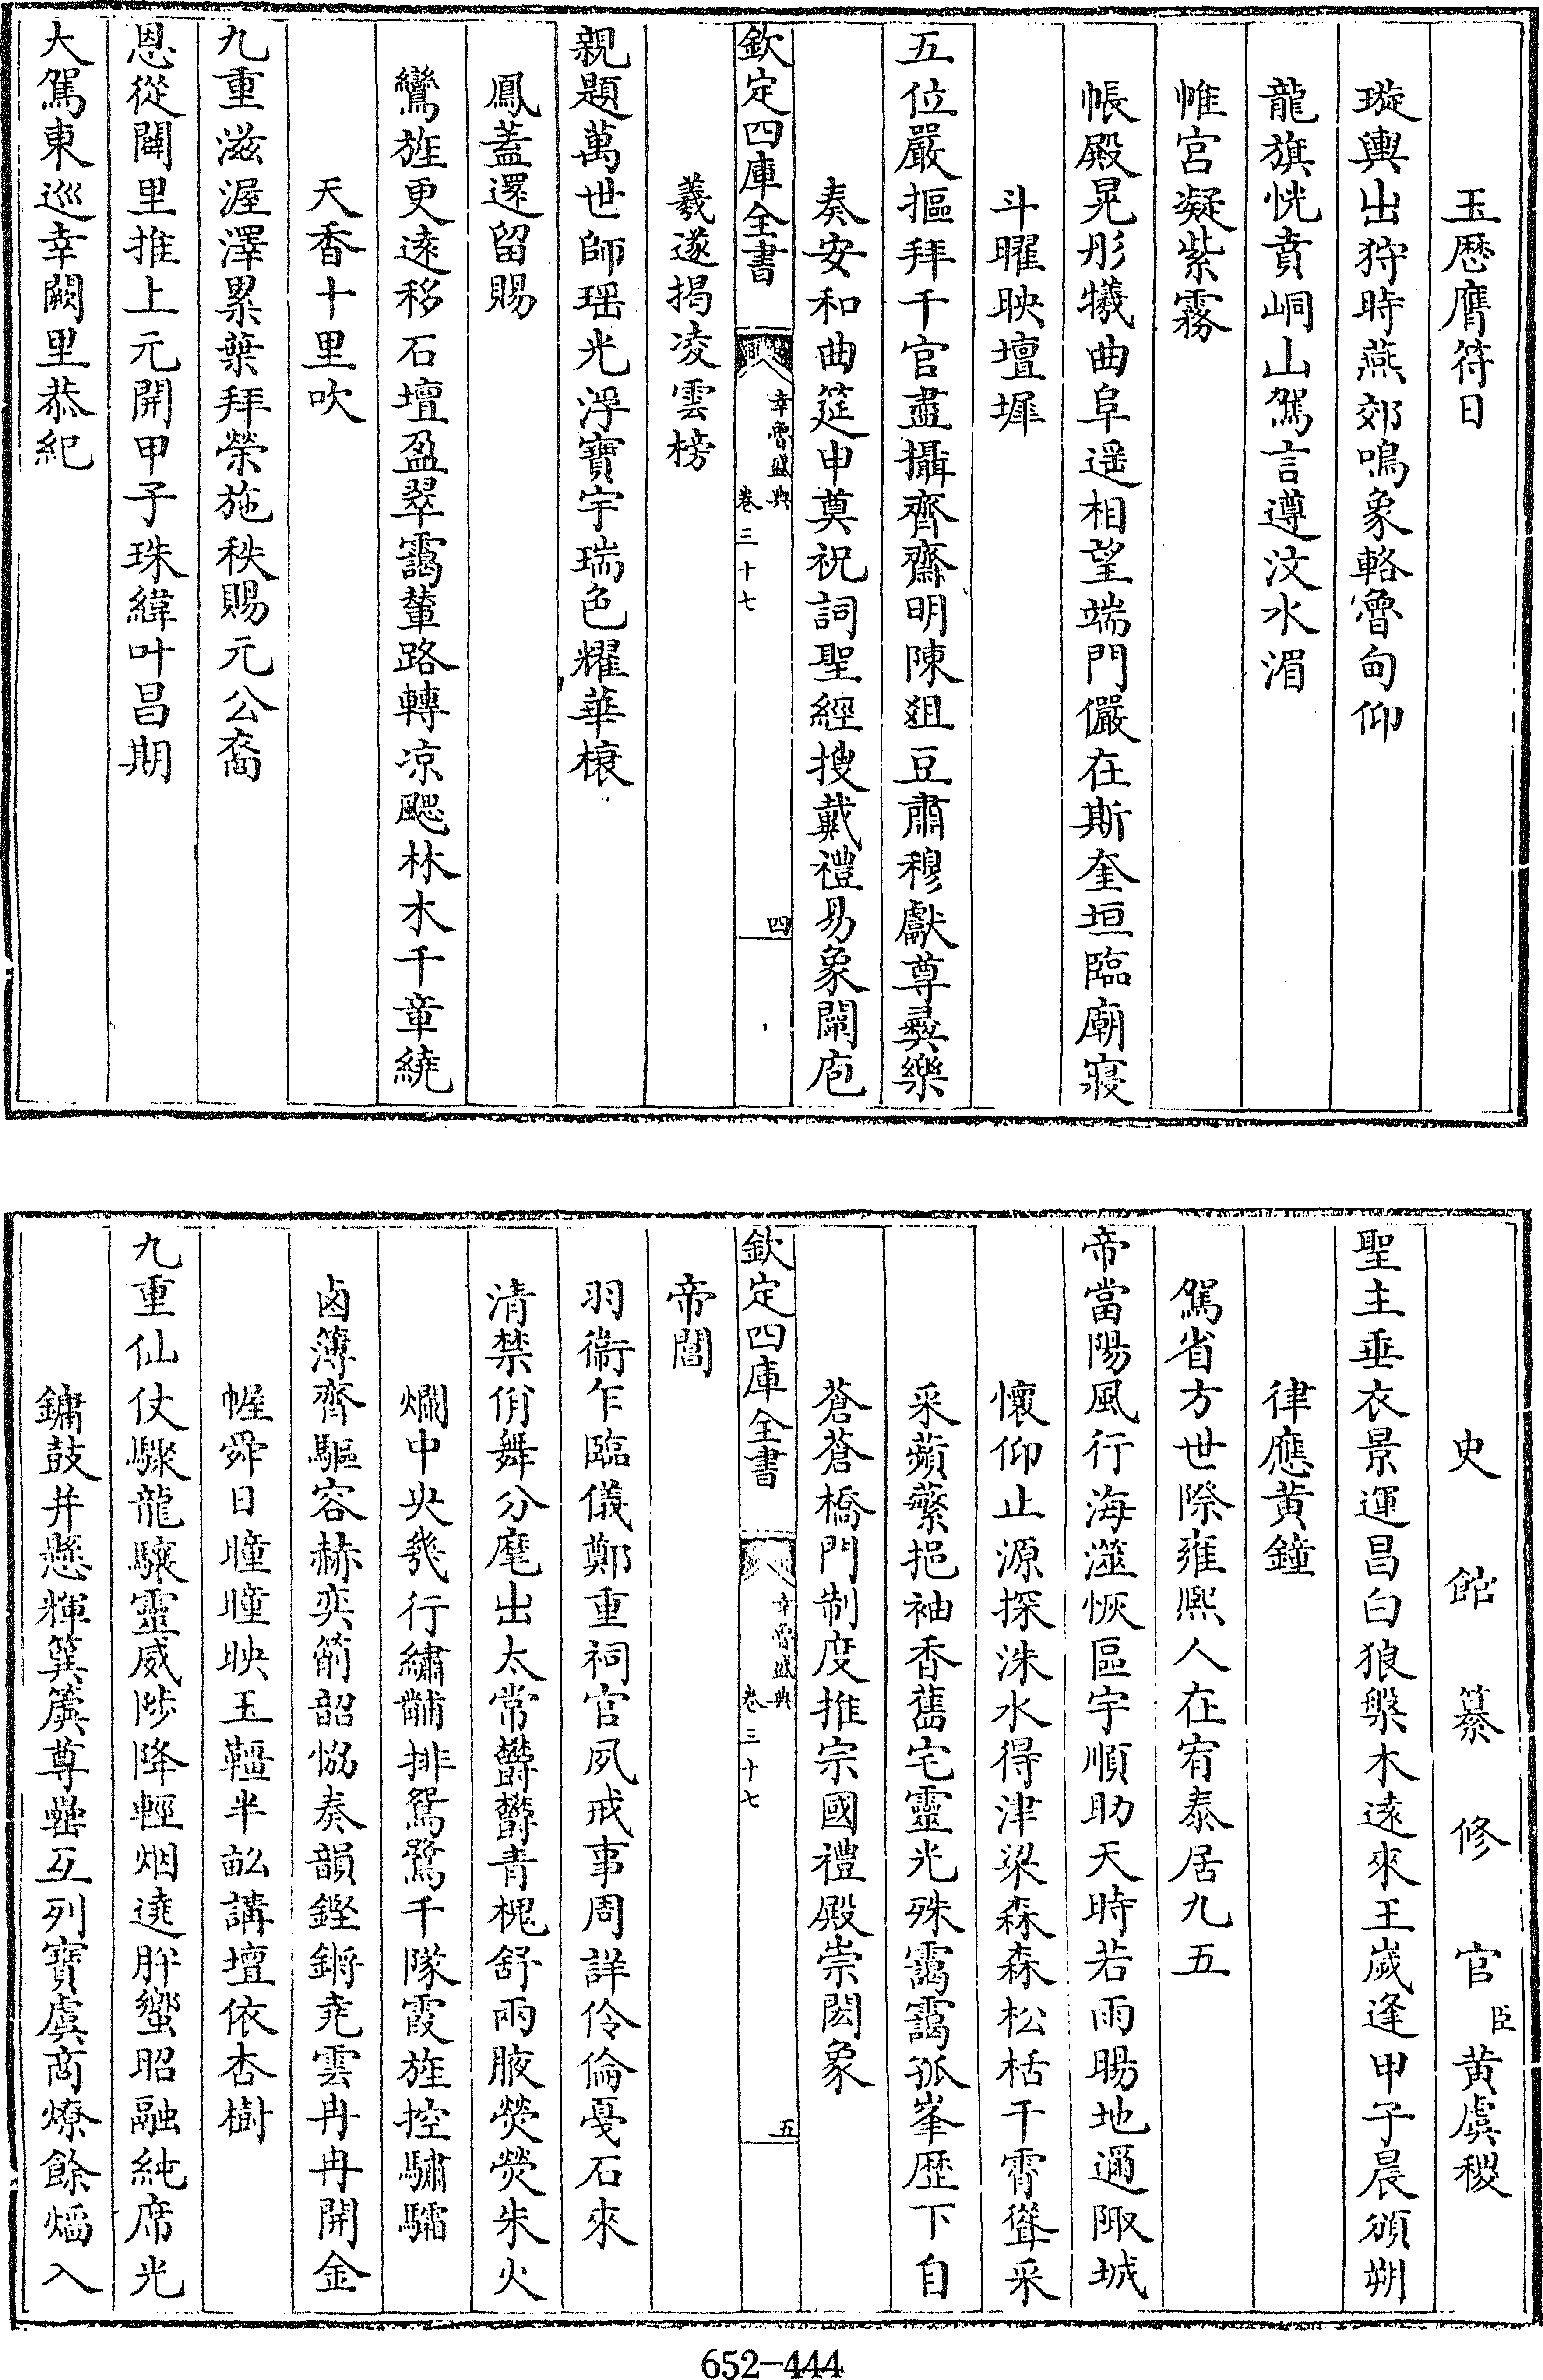 玉歴膺符日
璇輿出狩時燕郊鳴象輅魯甸仰
龍旗恍賁峒山駕言遵汶水湄
帷宫凝紫霧
帳殿晃彤犧曲阜遥相望端門儼在斯奎垣臨廟寢
斗曜映壇墀
五位嚴摳拜千官盡攝齊齋明陳爼豆肅穆獻尊彞樂
奏安和曲筵申奠祝詞聖經搜戴禮易象闡庖
欽定四庫全書
幸魯盛典
卷三十七
四
羲遂揭凌雲榜
親題萬世師瑶光浮寶宇瑞色耀華榱
鳳蓋還留賜
鸞旌更遠移石壇盈翠靄輦路轉凉颸林木千章繞
天香十里吹
九重滋渥澤累葉拜榮施秩賜元公裔
恩從闕里推上元開甲子珠緯叶昌期
大駕東巡幸闕里恭紀
史館纂修官臣黄虞稷
聖主垂衣景運昌白狼槃木遠來王嵗逢甲子晨頒朔
律應黄鐘
駕省方世際雍熙人在宥泰居九五
帝當陽風行海澨恢區宇順助天時若雨暘地邇陬城
懷仰止源探洙水得津梁森森松栝干霄聳采
采蘋蘩挹袖香舊宅靈光殊靄靄孤峯歴下自
蒼蒼橋門制度推宗國禮殿崇閎象
欽定四庫全書
幸魯盛典
卷三十七
五
帝閶
羽衞乍臨儀鄭重祠官夙戒事周詳伶倫戛石來
清禁佾舞分麾出太常鬱鬱青槐舒兩腋熒熒朱火
爛中央幾行繡黼排鴛鷺千隊霞旌控驌驦
鹵簿齊驅容赫奕箾韶恊奏韻鏗鏘堯雲冉冉開金
幄舜日曈曈映玉韁半畝講壇依杏樹
九重仙仗驟龍驤靈威陟降輕烟遶肸蠁昭融純席光
鏞鼓并懸輝簨簴尊罍互列寶虞商燎餘焰入
652-444